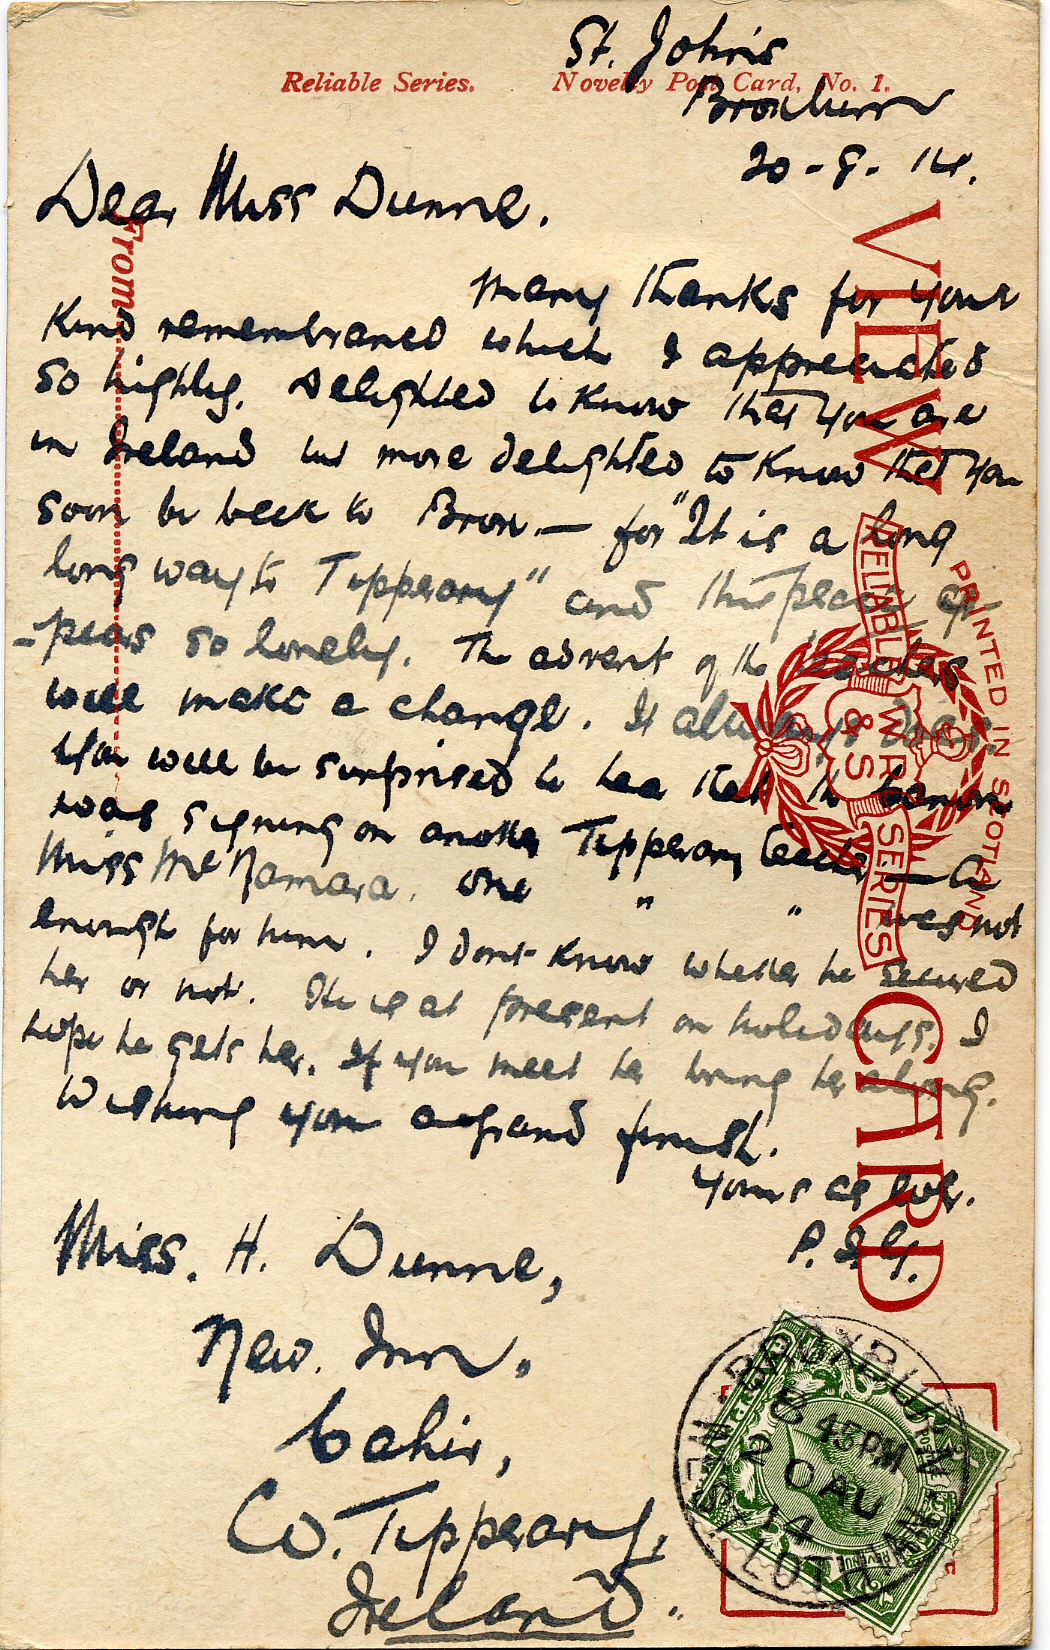 St. John's
Reliable Series. Novelty Post Card, No. 1.
Broxburn
20-8-14.
Dear Miss Dunne.
Many thanks for your
kind remembrance which I appreciated
so highly. Delighted to know that you are
in Ireland but more delighted to know that you
soon be back to Brox. — for "It is a long
long way to Tipperary" and this place ap-
-pears so lonely. The advent of the teachers
will make a change. It always does.
You will be surprised to hea that the Canon
was signing on another Tipperary teacher — a
Miss McNamara. one " " was not
enough for him. I don't know whether he secured
her or not. He is at present on holidays. I
hope he gets her. If you meet her bring her along.
Wishing you a grand finish.
Yours as ever.
P. S. G.
Miss. H. Dunne,
New. Inn,
Cahir,
Co. Tipperary,
Ireland.
From
VIEW CARD
RELIABLE W.R. & S. SERIES
PRINTED IN SCOTLAND
BROXBURN
6 45PM
20 AU
14
WEST LOTHIAN
POSTAGE
REVENUE